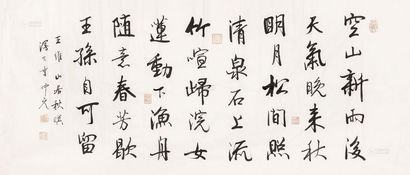 空山新雨後
天氣晚来秋
明月松間照
清泉石上流
竹喧歸浣女
蓮動下漁舟
随意春芳歇
王孫自可留
王維山居秋暝